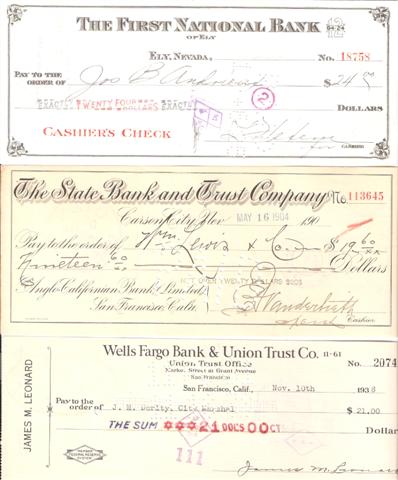 THE FIRST NATIONAL BANK
OF ELY
94-24
12
ELY, NEVADA, No. 18758
PAY TO THE
ORDER OF Jos B $24.00
EXACTLY TWENTY FOUR EXACTLY DOLLARS
2
CASHIER'S CHECK
for CASHIER
The State Bank and Trust Company No. 113645
Carson City, Nev MAY 16 1904 190
Pay to the order of Wm Lewis & Co. $19 60/xx
Nineteen 60/ Dollars
NOT OVER TWENTY DOLLARS $20$
Anglo-Californian Bank, Limited,
San Francisco, Cala.
Cashier
JAMES M. LEONARD
Wells Fargo Bank & Union Trust Co. 11-61
Union Trust Office
Market Street at Grant Avenue
San Francisco
No. 2074
San Francisco, Calif., Nov. 10th 1938
Pay to the
order of J. M. Dority, City Marshal $ 21.00
THE SUM 21 DOLS 00 CTS Dollars
MEMBER
FEDERAL RESERVE
SYSTEM
111
James M. Leonard